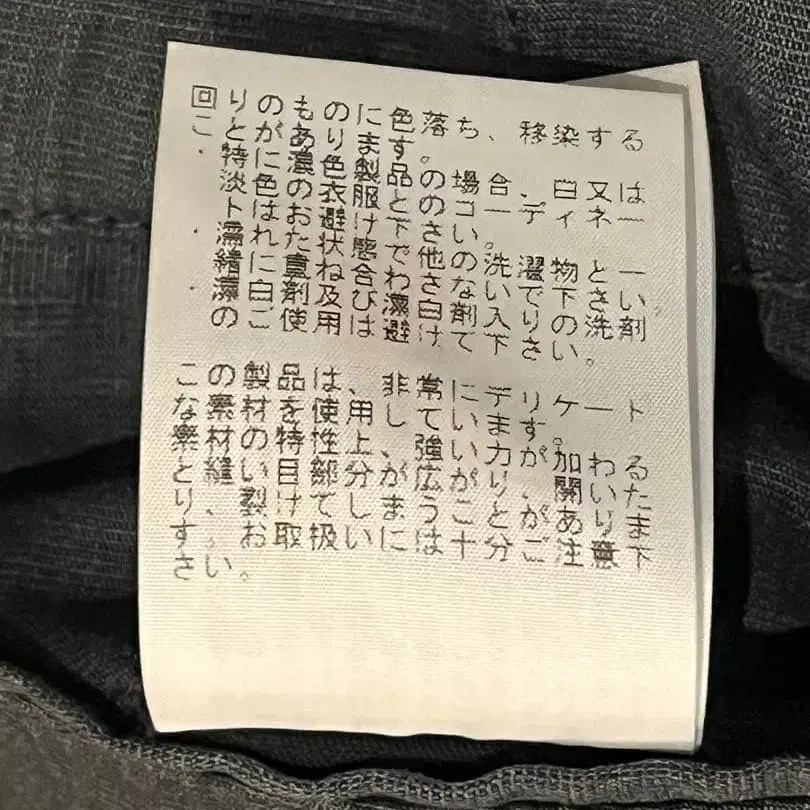 回りのものに色落ち、移染する
ことがあります。
・特に濃色製品の場合、白又は
淡色の衣服とのコーディネー
トはお避け下さい。
・濡れた状態で他の洗濯物と一
緒に重ね合わさないで下さい。
・漂白剤及び漂白剤入りの洗剤
のご使用は避けて下さい。
この製品は、非常にデリケート
な素材を使用しています。
素材の特性上、強い力が加わる
と縫い目部分が広がり、開いた
り、裂けてしまうことがありま
す。お取扱いには十分ご注意下
さい。